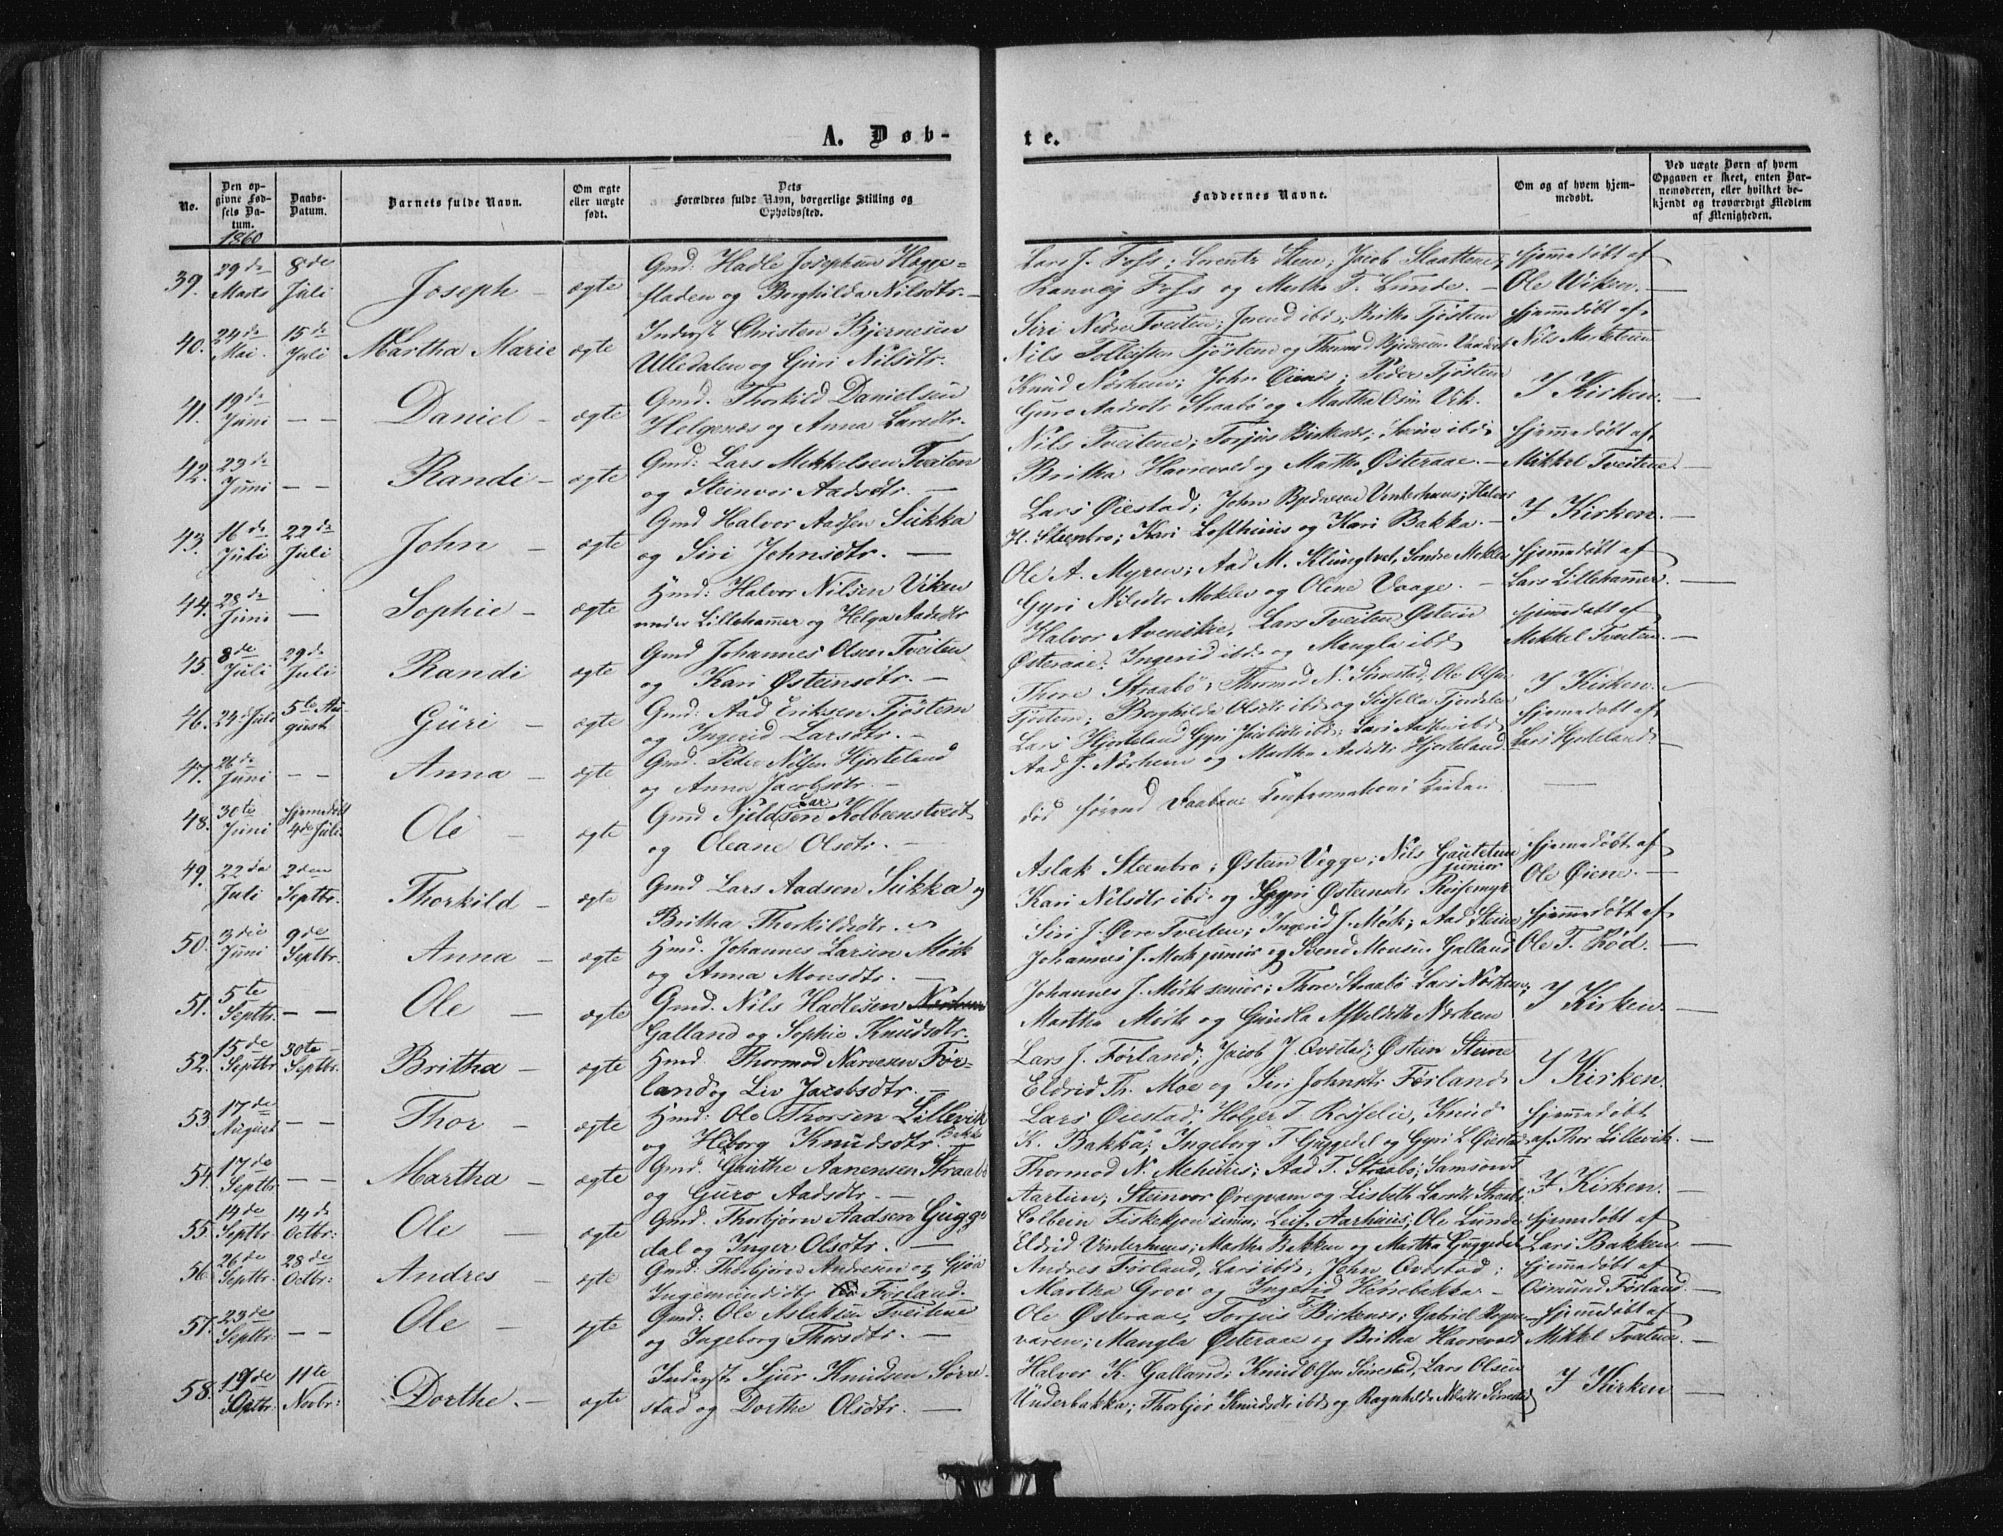 A. Døb-
te.
No.
Den opgivne Fødsels Datum.
Daabs-Datum.
Barnets fulde Navn.
Om ægte eller uægte født.
Dets Forældres fulde Navn, borgerlige Stilling og Opholdssted.
Faddernes Navne.
Om og af hvem hjemmedøbt.
Ved uægte Børn af hvem Opgaven er skeet, enten Barnemoderen, eller hvilket bekjendt og troværdigt Medlem af Menigheden.
1860
39. 29de Marts 8de Juli Joseph - ægte Gmd: Hadle Josephsen
og Borghilda Nilsdtr. -
Lars J. Foss; Lorentz Stene; Jacob
Ranveig Foss og Martha T. Lunde. - Hjemmedøbt af Ole Viken. -
40. 24de Mai. 15de Juli Martha Marie ægte Inderst Christen Bjernesen
Ulledalen og Guri Nilsdtr.
Siri Nedre Tveiten; ibd; Britha Tjøstem
Nils Tollefsen Tjøstem og Thormod Hjemmedøbt af
41. 19de Juni - - Daniel - ægte Gmd. Thorkild Danielsen
Helgenæs og Anna Larsdtr.
Knud Nørhem; John Øiene; Peder Tjøstem
Guro Aadsdtr Straabø og Martha Vik. I Kirken. -
42. 23de Juni - - Randi - ægte Gmd: Lars Mekkelsen Tveiten
og Steinvor Aadsdtr. -
Nils Tveitene; Torjus Birkenæs; ibd;
Britha Havrevold og Martha Østeraae. - Hjemmedøbt af Mikkel Tveitene. -
43. 16de Juli 22de Juli John - ægte Gmd Halvor Aadsen Sukka
og Siri Johnsdtr. -
Lars Øiestad; John Vinterhuus; Halvor
H. Steenbro; Kari Lofthuus og Kari Bakka. - I Kirken. -
44. 28de Juni - Sophie - ægte Hmd: Halvor Nilsen Viken
under Lillehammer og Helga Aadsdtr
Ole A. Myren; Aad M. Klungtvet, Sondre Moklev
Gyri Nilsdtr Moklev og Olene Vaage. - Hjemmedøbt af Lars Lillehammer. -
45. 8de Juli 29de Juli Randi ægte Gmd Johannes Olsen Tveiten
og Kari Østeinsdtr. -
Halvor Lars Tveiten Østein
Østeraae. Ingerid ibd og Mangla ibd Hjemmedøbt af Mekkel Tveiten. -
46. 24de Juli 5te August Guri - ægte Gmd: Aad Eriksen Tjøstem
og Ingerid Larsdtr. -
Thore Straabø; Thormod N. Sørestad, Ole Olsen
Tjøstem; Borghilda Olsdtr ibd og I Kirken. -
47. 26de Juni - - Anna - ægte Gmd. Peder Nilsen Hjorteland
og Anna Jacobsdtr. -
Lars Hjorteland Gyri Jacobsdtr ibd; Lars ibd
Aad J. Nørhem og Martha Aadsdtr Hjorteland. Hjemmedøbt af Lars Hjorteland. -
48. 30te Juni Hjemmedøbt 4de Juli Ole - ægte Gmd Kolbeenstvedt
og Oleane Olsdtr. -
død førend Daabens Confirmation i Kirken -
49. 22de Juli 2den Septbr. Thorkild - ægte Gmd Lars Aadsen Sukka og
Britha Thorkildsdtr. -
Aslak Steenbro; Østein Vegge; Nils Gautetun junior
Kari Nilsdtr ibd. og Gyri Østeensdtr Røisemyr Hjemmedøbt af Ole Øiene. -
50. 3die Juni 9de Septbr. Anna - ægte Hmd. Johannes Larsen Mørk
og Anna Monsdtr. -
Siri J. Øvre Tveiten; Ingerid J. Mørk; Aad Steine
Johannes J. Mørk junior og Svend Monsen Galland Hjemmedøbt af Ole T. Rød. -
51. 5te Septbr. - - Ole - ægte Gmd. Nils Hadlesen
Galland og Sophie Knudsdtr.
Johannes J. Mørk senior; Thore Straabø Lars Nørhem;
Martha Mørk og Gundla Nørhem I Kirken. -
52. 15de Septbr 30te Septbr. Britha - ægte Hmd Thormod Narvesen Før-
land og Liv Jacobsdtr. -
Lars J. Førland; Jacob J. Qvestad; Østein Steine
Eldrid Th. Moe og Siri Johnsdtr Førland. I Kirken.
53. 17de August - - Thor - ægte Hmd: Ole Thorsen Lillevik
og Knudsdtr
Lars Øiestad; Holger T. Røsselie, Knud
K. Bakka; Ingeborg T Guggedal og Gyri L. Øiestad Hjemmedøbt af Thor Lillevik. -
54. 17de Septbr. - - Martha - ægte Gmd. Gauthe Aanensen Straabø
og Guro Aadsdtr. -
Thormod N. Mehuus; Aad T. Straabø; Samson T.
Aartun; Steinvor Øregvam og Lisbeth Larsdtr Straabø. I Kirken. -
55. 14de Septbr 14de Octbr: Ole - ægte Gmd. Thorbjørn Aadsen Gugge-
dal og Inger Olsdtr. -
Colbein Fiskekjøn senior; Leif Aarhuus; Ole Lunde
Eldrid Vinterhuus; Martha Bakken og Martha Guggedal Hjemmedøbt af Lars Bakken. -
56. 26de Septbr. 28de Octbr: Andres - ægte Gmd: Thorbjørn Andresen og Gjøa
Ingemundsdtr Førland.
Andres Førland, Lars ibd; John Qvestad;
Martha Grov og Ingerid Hønebakka. - Hjemmedøbt af Osmund Førland. -
57. 23de Septbr. - - Ole - ægte Gmd: Ole Aslaksen Tveitene
og Ingeborg Thorsdtr. -
Ole Østeraae, Torjus Birkenæs; Gabriel
varen; Mangla Østeraae og Britha Havrevold Hjemmedøbt af Mikkel Tveitene. -
58. 19de 11te Novbr: Dorthe. - ægte Inderst Sjur Knudsen Sørre-
stad og Dorthe Olsdtr. -
Halvor K. Galland; Knud Olsen Sørrestad, Lars Olsen
Underbakka; Thorbjør Knudsdtr ibd og Ragnhilda Nilsdtr Sørrestad I Kirken -